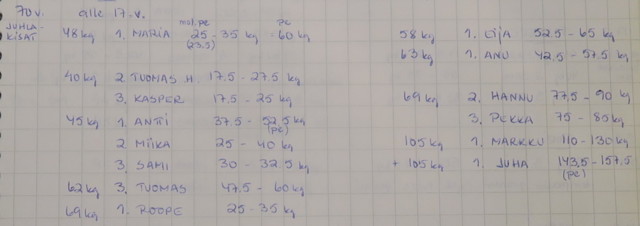 70v. alle 17-v.
JUHLA-
KISAT
mol. pe pe
48kg 1. MARIA 25 - 35 kg - 60 kg
(23,5)
40 kg 2. TUOMAS H. 17,5 - 27,5 kg
3. KASPER 17,5 - 25 kg
45 kg 1. ANTTI 37,5 - 52,5 kg
(pe)
2. MIIKA 25 - 40 kg
3. SAMI 30 - 32,5 kg
62 kg 3. TUOMAS 47,5 - 60 kg
69 kg 1. ROOPE 25 - 35 kg
58 kg 1. EIJA 52,5 - 65 kg
63 kg 1. ANU 42,5 - 57,5 kg
69 kg 2. HANNU 77,5 - 90 kg
3. PEKKA 75 - 85 kg
105 kg 1. MARKKU 110 - 130 kg
+ 105 kg 1. JUHA 143,5 - 157,5
(pe)